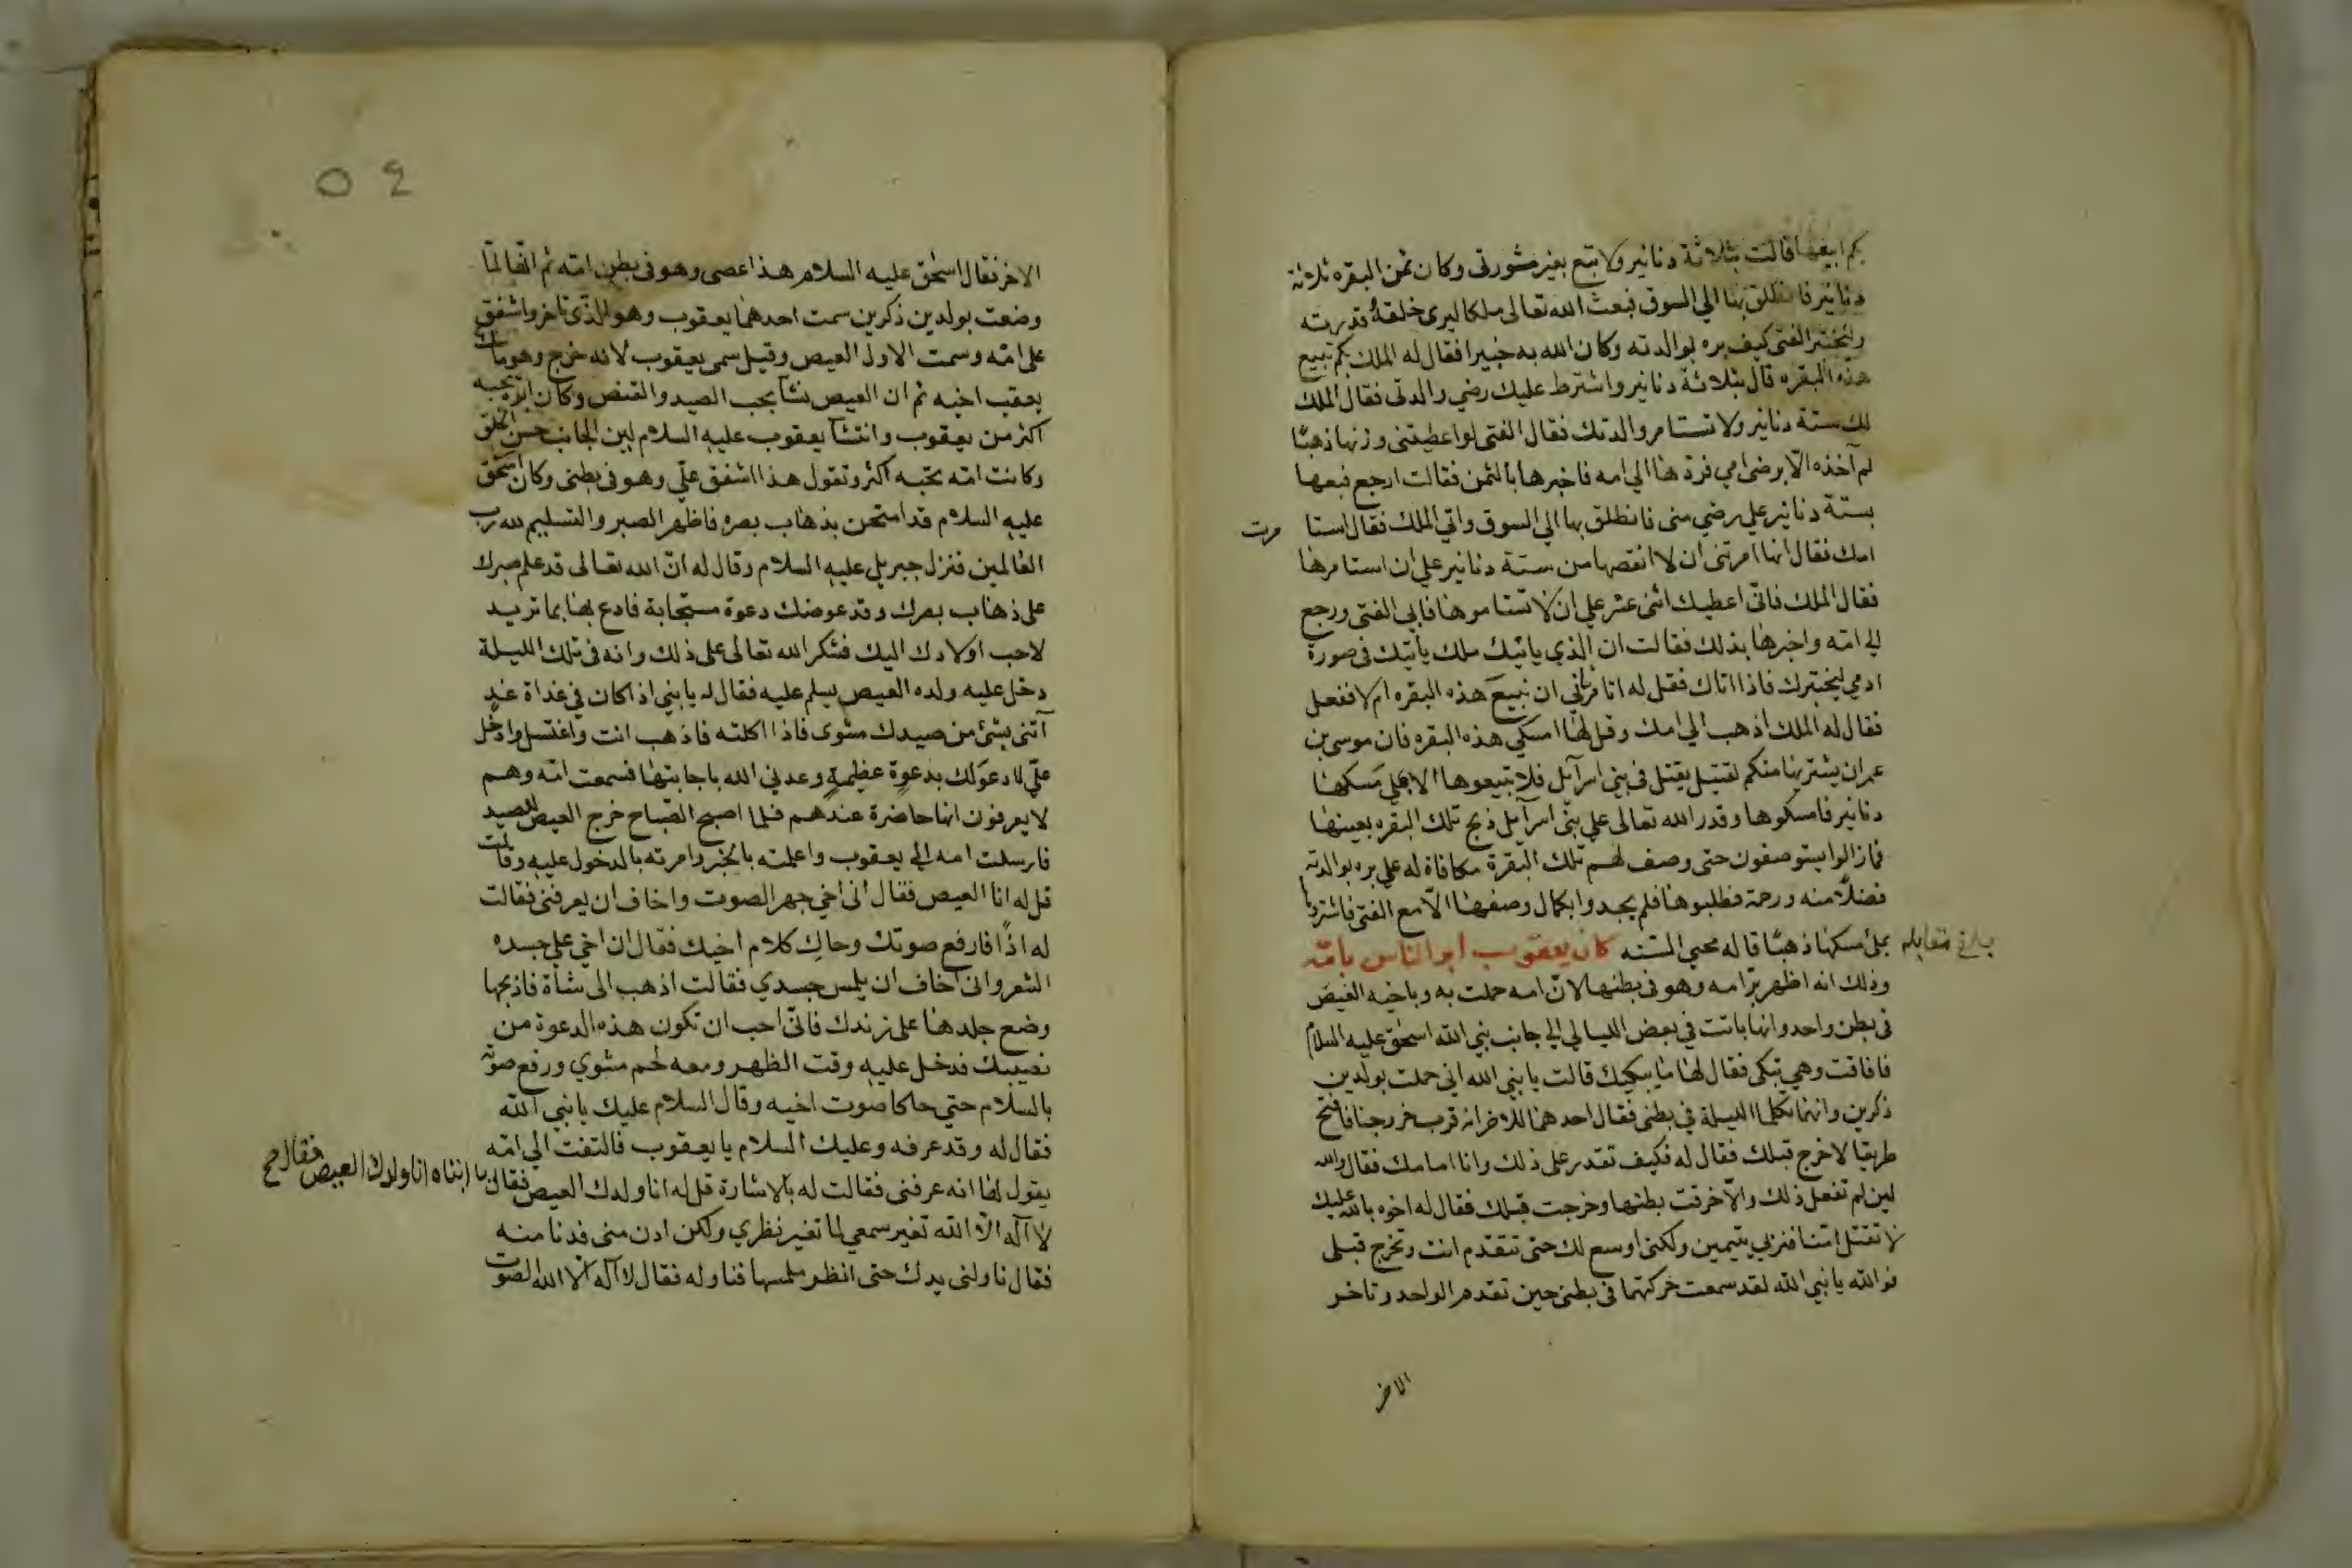 بكم ابيعها قالت بثلاثة دنانير ولا تبع بغير مشورتي وكان ثمن البقره ثلاثة
دنانير فانطلق بها الي السوق فبعث الله تعالى ملكا ليرى خلقه قدرته
وليختبر الفتى كيف بره بوالدته وكان الله به خبيرا فقال له الملك بكم تبيع
هذه البقره قال بثلاثة دنانير واشترط عليك رضي والدتى فقال الملك
لك ستة دنانير ولا تستامر والدتك فقال الفتى لو اعطيتنى وزنها ذهبًا
لم آخذه الّا برضى امي فردّها الي امه فاخبرها بالثمن فقالت ارجع فبعها
بستة دنانير علي رضي منى فانطلق بها الي السوق واتي الملك فقال استا مرت
امك فقال انها امرتنى ان لا انقصها من ستة دنانير علي ان استامرها
فقال الملك فانّى اعطيك اثنى عشر علي ان لا تستامرها فابي الفتى ورجع
الي امّه واخبرها بذلك فقالت ان الذي ياتيك ملك يأتيك فى صورة
ادمي ليختبرك فاذا اتاك فقل له اتامرنى ان نبيع هذه البقره ام لا ففعل
فقال له الملك اذهب الي امك وقل لها امسكي هذه البقره فان موسى بن
عمران يشتريها منكم لقتيل يقتل فى بني اسرآيل فلا تبيعوها الا بملي مسكها
دنانير فامسكوها وقدر الله تعالى علي بنى اسرآيل ذبح تلك البقره بعينها
فما زالوا يستوصفون حتى وصف لهم تلك البقرة مكافاة له علي بره بوالدته
فضلاً منه ورحمة فطلبوها فلم يجدوا بكمال وصفها الّا مع الفتى فاشتروها
بملئ مسكها ذهبًا قاله محيي السنه كان يعقوب ابر الناس بامّه
بلغ مقابله
وذلك انه اظهر برّ امه وهو فى بطنها لانّ امه حملت به وباخيه العيص
فى بطن واحد وانها باتت في بعض الليالي الي جانب نبي الله اسحق عليه السلام
فافاقت وهي تبكى فقال لها ما يبكيك قالت يا نبي الله اني حملت بولدين
ذكرين وانهما تكلما الليلة في بطنى فقال احدهما للاخر انه قرب خروجنا فافتح
طريقا لاخرج قبلك فقال له فكيف تقدر على ذلك وانا امامك فقال والله
لين لم تفعل ذلك والّا خرقت بطنها وخرجت قبلك فقال له اخوه بالله عليك
لا تقتل امّنا فنربي يتيمين ولكنى اوسع لك حتى تتقدم انت وتخرج قبلى
فوالله يا نبي الله لقد سمعت حركتهما فى بطنى حين تقدم الواحد وتاخر
الاخر
الاخر فقال اسحق عليه السلام هذا عصى وهو فى بطن امّه ثم انها لمّا
وضعت بولدين ذكرين سمت احدهما يعقوب وهو الذى تاخر واشفق
على امّه وسمت الاول العيص وقيل سمى يعقوب لانه خرج وهو ماسك
بعقب اخيه ثم ان العيص نشأ يحب الصيد والقنص وكان ابوه يحبه
اكثر من يعقوب وانتشأ يعقوب عليه السلام لين الجانب حسن الخلق
وكانت امّه تحبّه اكثر وتقول هذا اشفق علّي وهو فى بطنى وكان اسحق
عليه السلام قد امتحن بذهاب بصره فاظهر الصبر والتسليم لله رب
العالمين فنزل جبريل عليه السلام وقال له انّ الله تعالى قد علم صبرك
على ذهاب بصرك وقد عوضك دعوة مستجابة فادع بها بما تريد
لاحب اولادك اليك فشكر الله تعالى على ذلك وانه فى تلك الليلة
دخل عليه ولده العيص يسلم عليه فقال له يا بني اذا كان في غداة غد
آتنى بشئ من صيدك مشوى فاذا اكلته فاذهب انت واغتسل وادخل
علّي لادعو لك بدعوة عظيمة وعدني الله باجابتها فسمعت امّه وهم
لا يعرفون انها حاضرة عندهم فلما اصبح الصّباح خرج العيص للصيد
فارسلت امه الي يعقوب واعلمته بالخبر وامرته بالدخول عليه وقالت
قل له انا العيص فقال انى اخي جهر الصوت واخاف ان يعرفنى فقالت
له اذًا فارفع صوتك وحاكِ كلام اخيك فقال ان اخي علي جسده
الشعر وانى اخاف ان يلمس جسدي فقالت اذهب الى شاة فاذبحها
وضع جلدها على زندك فانّى احب ان تكون هذه الدعوة من
نصيبك فدخل عليه وقت الظهر ومعه لحم مشوي ورفع صوته
بالسلام حتى حاكا صوت اخيه وقال السلام عليك يا نبي الله
فقال له وقد عرفه وعليك السلام يا يعقوب فالتفت الي امّه
يقول لها انه عرفنى فقالت له بالاشارة قل له انا ولدك العيص فقال
يا ابتاه انا ولدك العيص فقال صح
لا آله الّا الله تغير سمعي لما تغير نظري ولكن ادن منى فدنا منه
فقال ناولنى يدك حتى انظر ملمسها فناوله فقال لا آله الّا الله الصوت